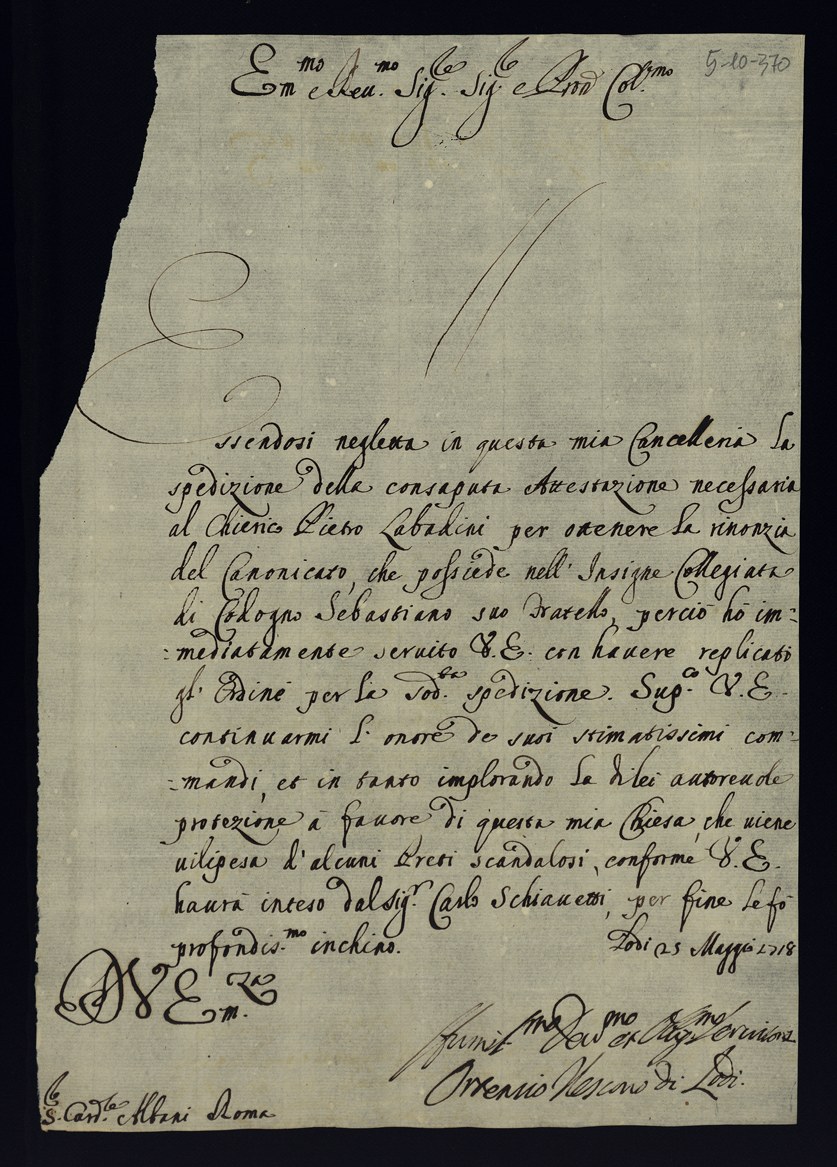 5-10-370
Em.mo e Reu.mo Sig.r Sig.r e Pron Col.mo
Essendosi negletta in questa mia Cancelleria la
spedizione della consaputa Attestazione necessaria
al Chierico Pietro Labadini per ottenere la rinonzia
del Canonicato, che possiede nell' Insigne Collegiata
di Codogno Sebastiano suo Fratello, perciò hò im=
=mediatamente seruito V.E. con hauere replicato
gl' Ordini per la sod.ta spedizione. Sup.co V.E.
continuarmi l' onore de suoi stimatissimi com=
=mandi, et in tanto implorando la dilei autoreuole
protezione à fauore di questa mia Chiesa, che uiene
uilipesa d' alcuni Preti scandalosi, conforme V.E.
haurà inteso dal Sig.r Carlo Schiauetti, per fine le fò
profondis.mo inchino. Lodi 25 Maggio 1718
D V Em.za
Humil.mo Deu.mo et Oblig.mo Seruitore
Ortensio Vescouo di Lodi.
S.r Card.le Albani Roma